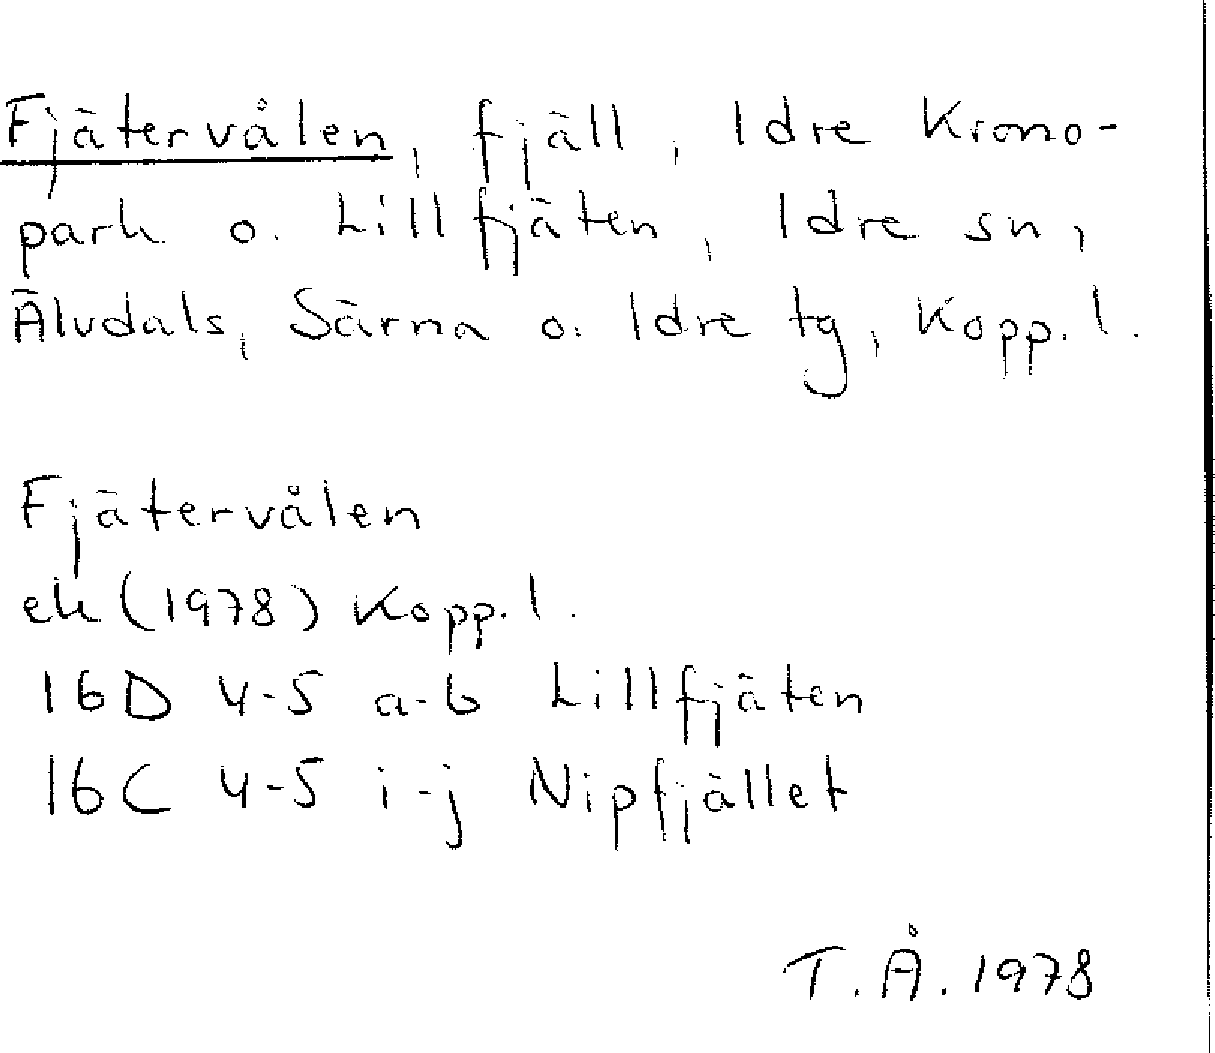 Fjätervålen, fjäll, Idre Krono-
park o. Lillfjäten, Idre sn,
Älvdals, Särna o. Idre tg, Kopp. l.
Fjätervålen
ek (1978) Kopp. l.
16D 4-5 a-b Lillfjäten
16C 4-5 i-j Nipfjället
T.Å. 1978